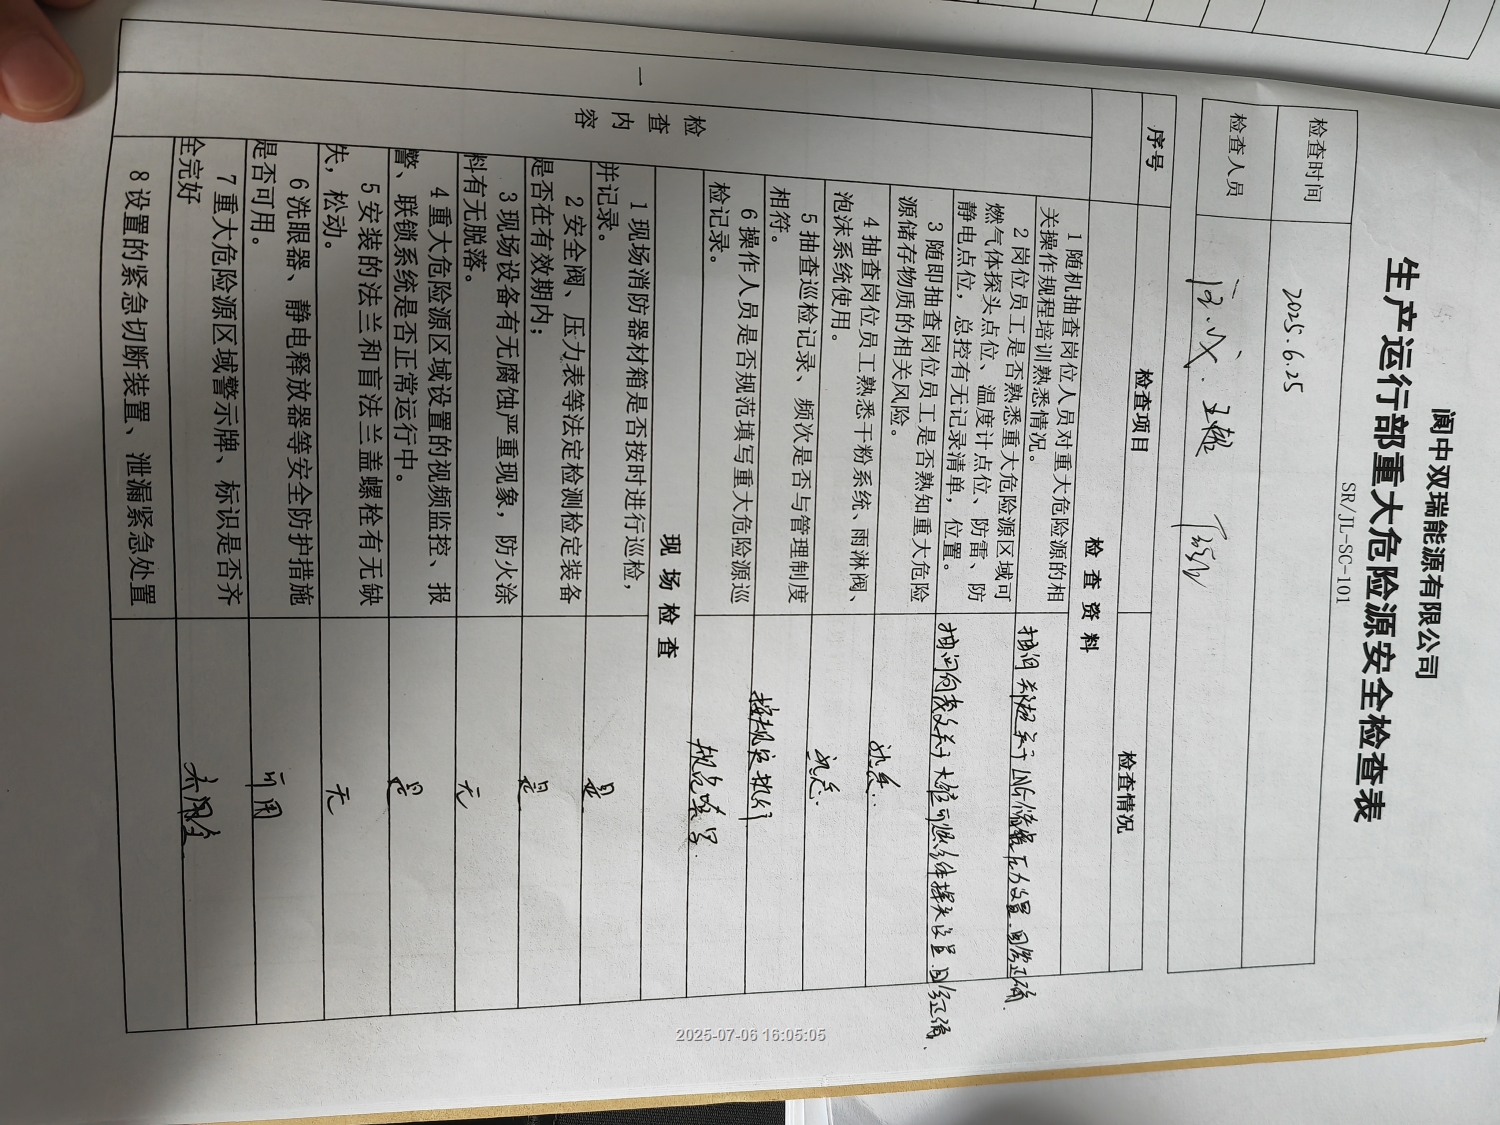 阆中双瑞能源有限公司
生产运行部重大危险源安全检查表
SR/JL-SC-101
检查时间 2025.6.25
检查人员 王超
序号 检查项目 检查情况
一 检查内容
检查资料
1随机抽查岗位人员对重大危险源的相
关操作规程培训熟悉情况。
抽问 关于LNG储罐压力设置,回答正确.
2岗位员工是否熟悉重大危险源区域可
燃气体探头点位、温度计点位、防雷、防
静电点位,总控有无记录清单,位置。
抽问 关于 可燃气体探头位置,回答正确.
3随即抽查岗位员工是否熟知重大危险
源储存物质的相关风险。
熟悉.
4抽查岗位员工熟悉干粉系统、雨淋阀、
泡沫系统使用。
熟悉.
5抽查巡检记录、频次是否与管理制度
相符。
按规定执行
6操作人员是否规范填写重大危险源巡
检记录。
规范填写.
现场检查
1现场消防器材箱是否按时进行巡检,
并记录。
是
2安全阀、压力表等法定检测检定装备
是否在有效期内;
是
3现场设备有无腐蚀严重现象,防火涂
料有无脱落。
无
4重大危险源区域设置的视频监控、报
警、联锁系统是否正常运行中。
是
5安装的法兰和盲法兰盖螺栓有无缺
失,松动。
无
6洗眼器、静电释放器等安全防护措施
是否可用。
可用
7重大危险源区域警示牌、标识是否齐
全完好
8设置的紧急切断装置、泄漏紧急处置
2025-07-06 16:05:05